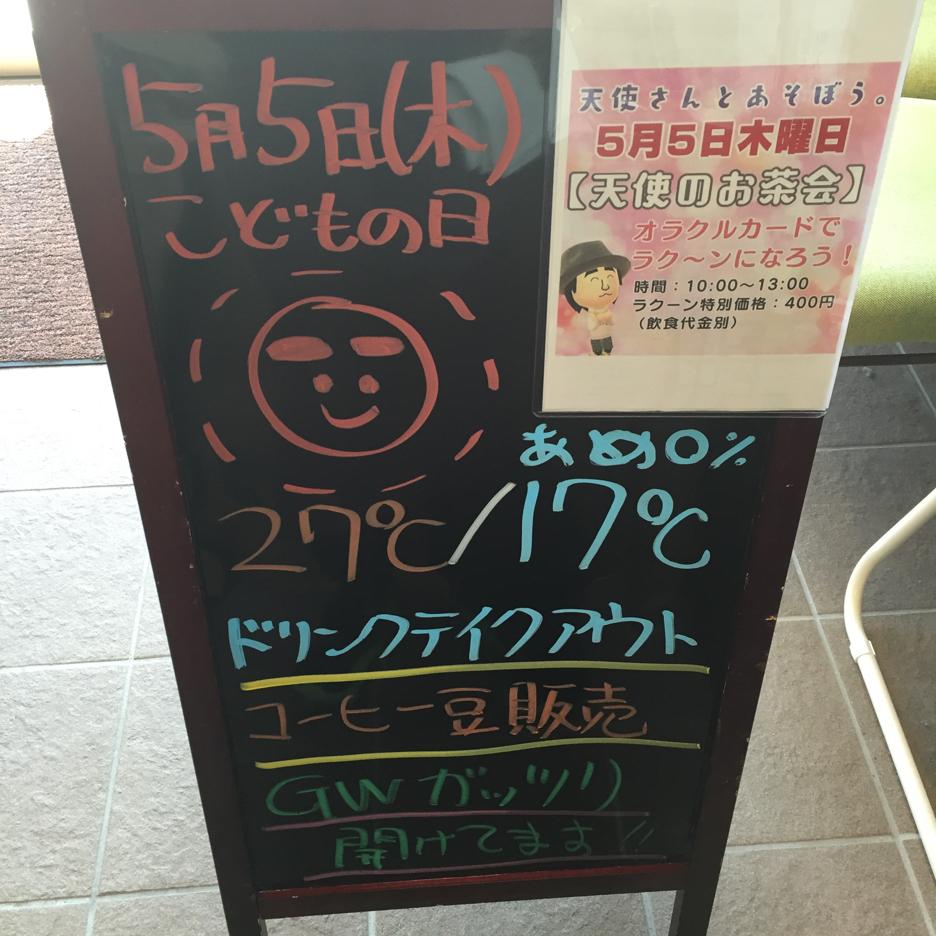 5月5日(木)
こどもの日
あめ0%
27℃/17℃
ドリンクテイクアウト
コーヒー豆販売
GWガッツリ
開けてます!!
天使さんとあそぼう。
5月5日木曜日
【天使のお茶会】
オラクルカードで
ラク〜ンになろう!
時間:10:00〜13:00
ラクーン特別価格:400円
(飲食代金別)